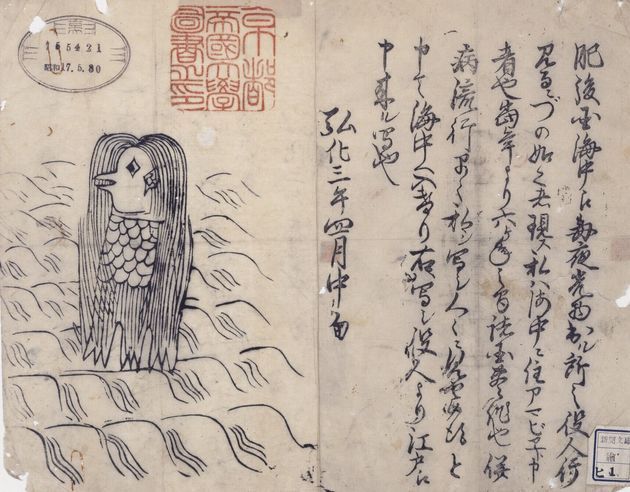 肥後国海中え毎夜光物出ル所之役人行
見るニづの如く者現ス私ハ海中ニ住アマビヱト申
者也当年より六ヶ年之間諸国豊作也併
病流行早々私シ写シ人々ニ見せ候得と
申て海中へ入けり右写シ役人より江戸え
申来ル写也
弘化三年四月中旬
京都
帝國大學
圖書之印
165421
昭和17.5.30
繪
ヒ 1